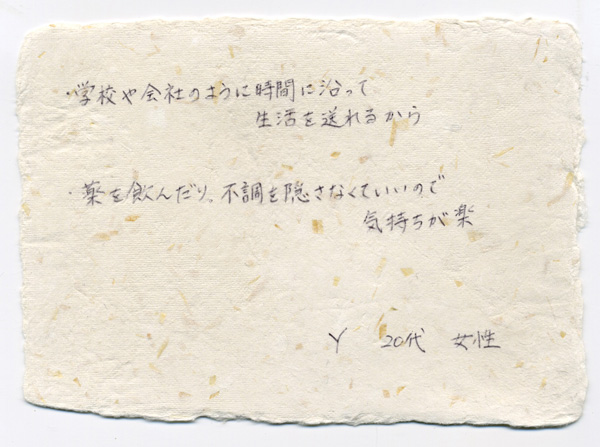 ・学校や会社のように時間に沿って
生活を送れるから
・薬を飲んだり、不調を隠さなくていいので
気持ちが楽
Y 20代 女性